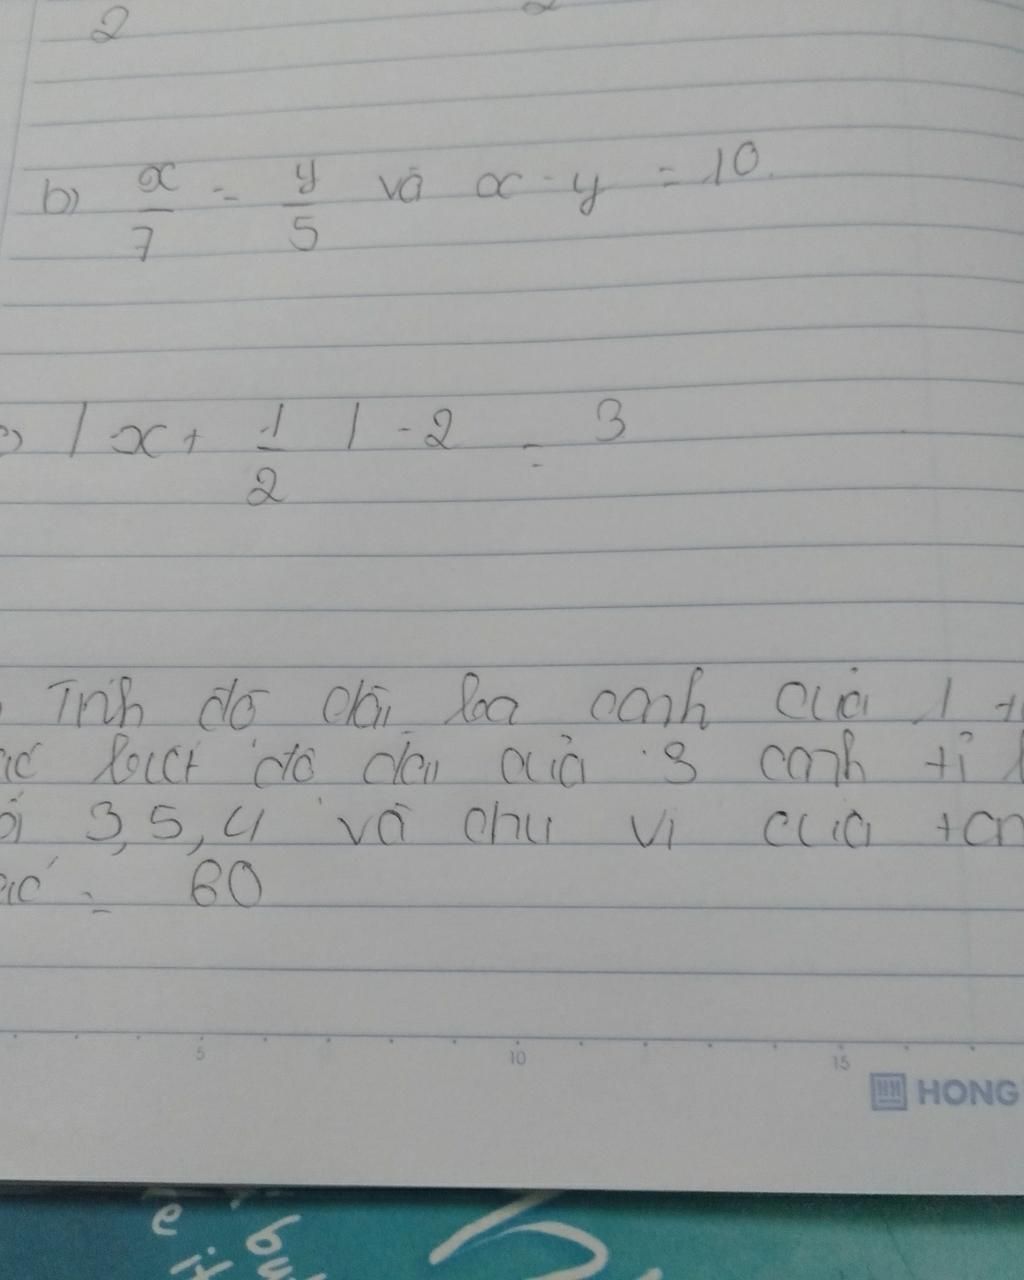 2
b) x/7 = y/5 và x - y = 10.
c) | x + 1/2 | - 2 = 3
Tính độ dài ba cạnh của 1 t
ác biết độ dài của 3 cạnh tỉ l
ới 3, 5, 4 và chu vi của tam
ác = 60
5 10 15
HONG
e it bu